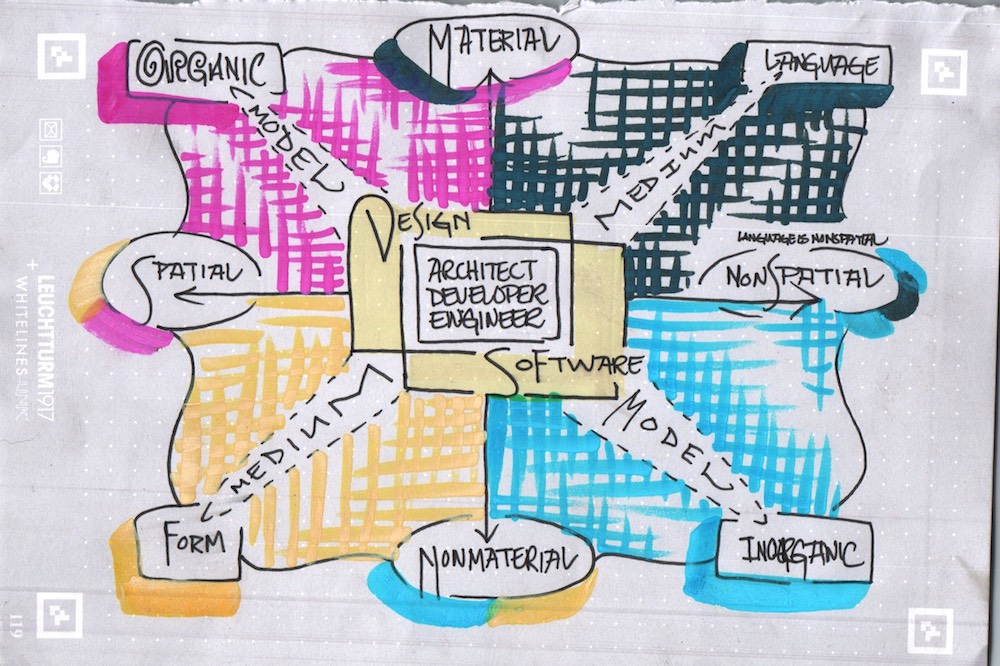 MATERIAL
ORGANIC
LANGUAGE
MODEL
MEDIUM
DESIGN
LANGUAGE IS NONSPATIAL
SPATIAL
ARCHITECT
DEVELOPER
ENGINEER
NONSPATIAL
SOFTWARE
MEDIUM
MODEL
FORM
NONMATERIAL
INORGANIC
LEUCHTTURM1917
+ WHITELINES
119